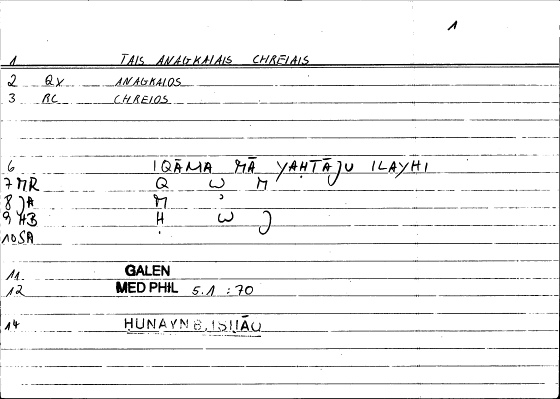 1
1 TAIS ANAGKAIAIS CHREIAIS
2 QX ANAGKAIOS
3 RC CHREIOS
6 IQĀMA MĀ YAḤTĀJU ILAYHI
7 MR Q W M
8 JA M ,
9 HB Ḥ W J
10 SA .
11 GALEN
12 MED PHIL 5.1 :70
14 ḤUNAYN B. ISḤĀQ